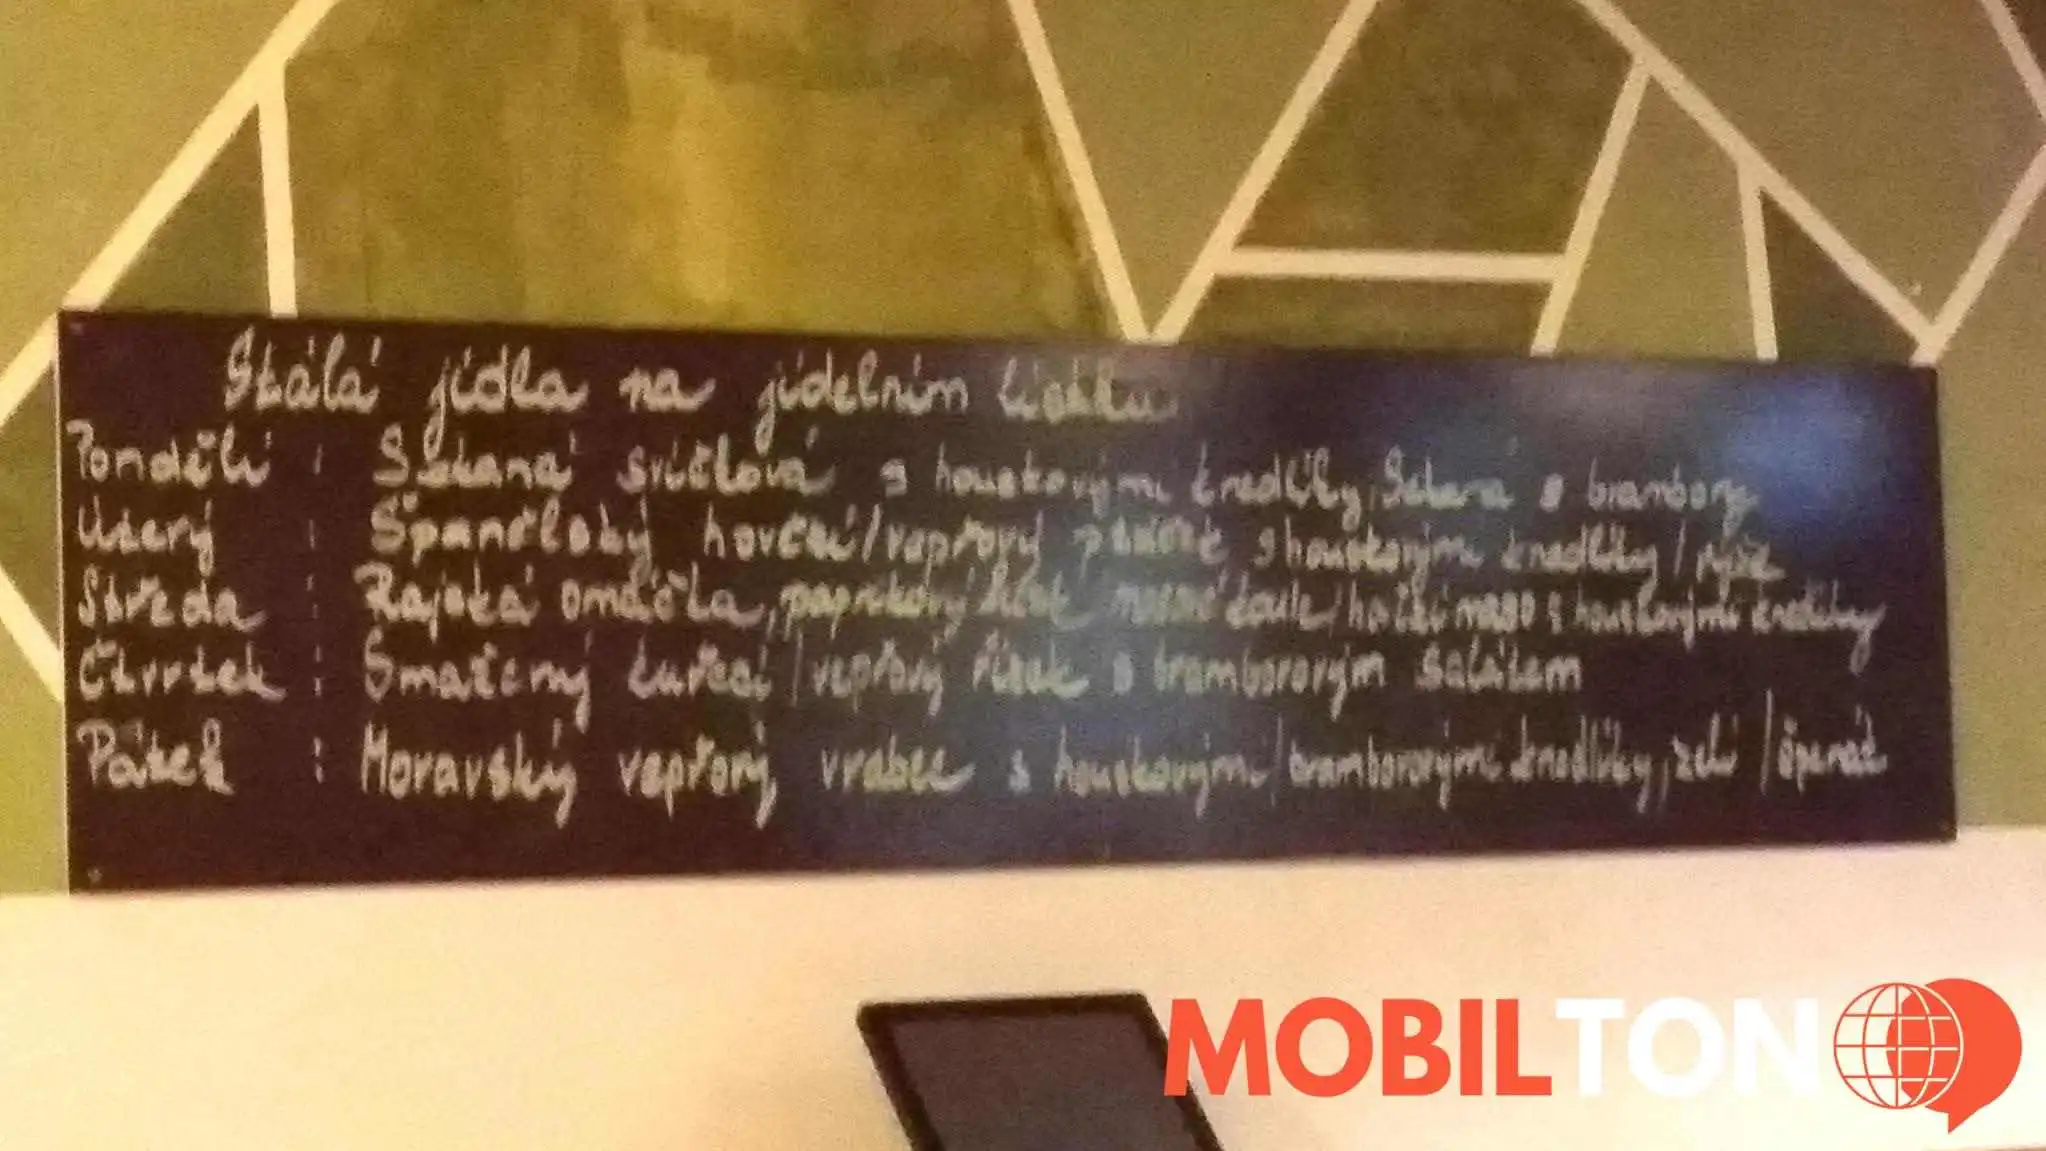 Stálá jídla na jídelním lístku
Pondělí : Sekaná svíčková s houskovými knedlíky, Sekaná s brambory
Úterý : Španělský hovězí/vepřový s houskovými knedlíky / rýže
Středa : Rajská omáčka, paprikový maso s houskovými knedlíky
Čtvrtek : Smažený kuřecí / vepřový řízek s bramborovým salátem
Pátek : Moravský vepřový vrabec s houskovými / bramborovými knedlíky, zelí / špenát
MOBILTON